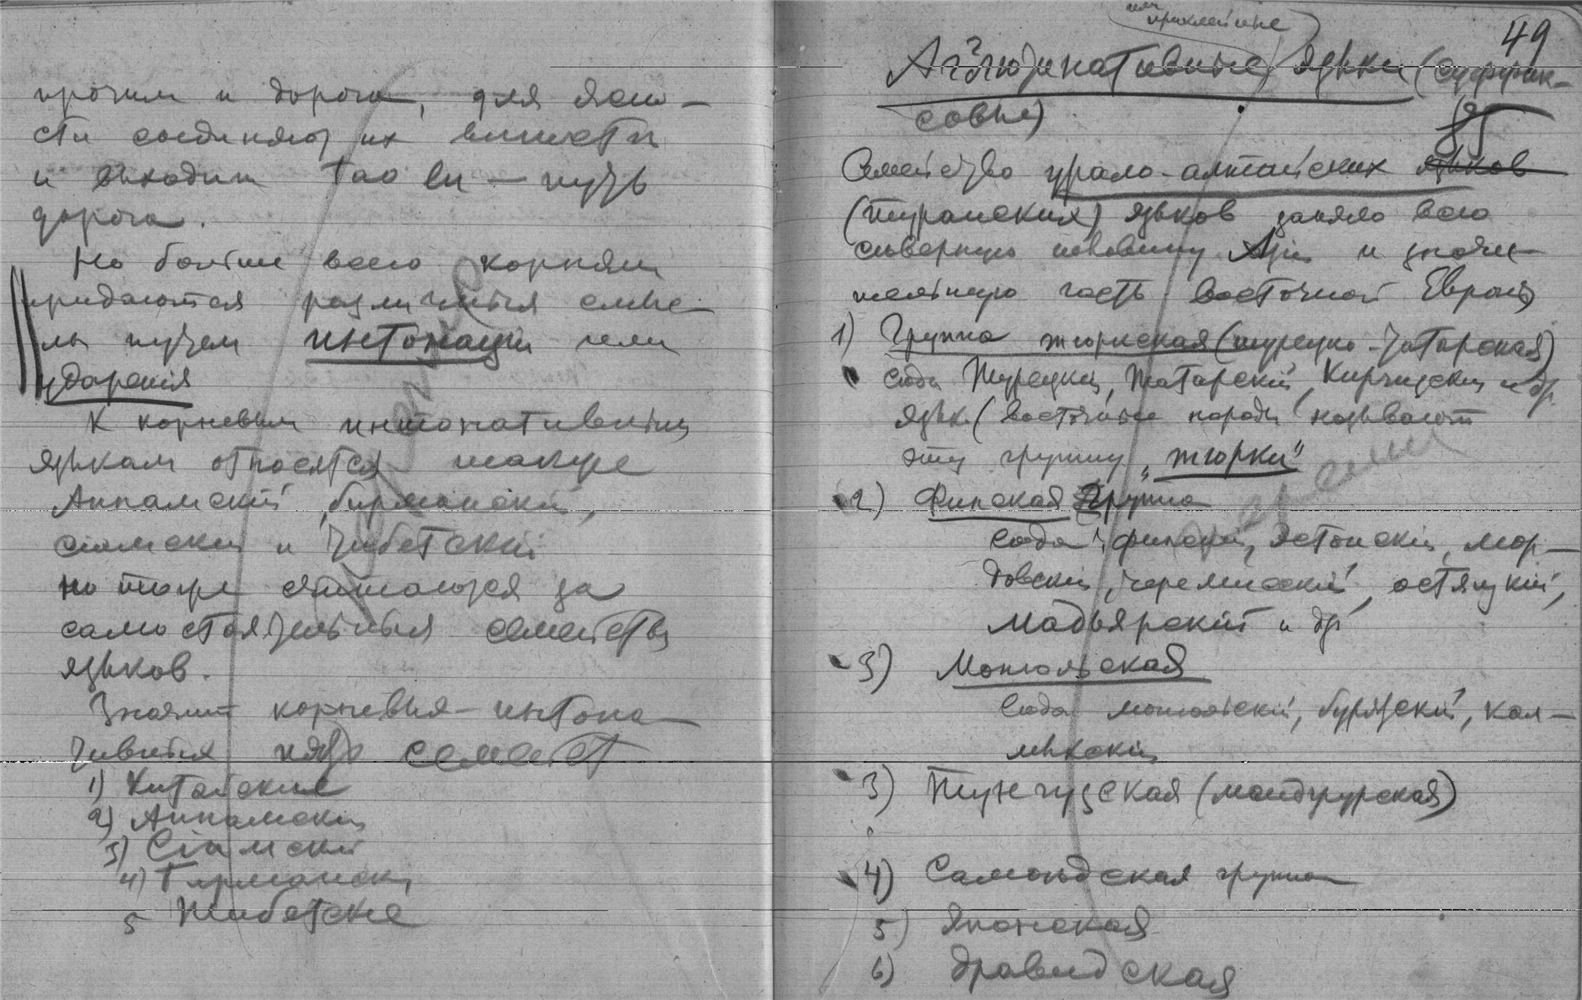 прочим и дорога, для ясно-
сти соединяют их вместе
и выходит Тао ви — путь
дорога.
Но больше всего корням
придаются различныя смыс-
лы путем интонации или
ударения
К корневым интонативным
языкам относятся также
Аннамский, бирманский,
сиамский и Тибетский
но тоже считаются за
самостоятельныя семейства
языков.
Значит корневыя-интона-
тивныя семейств
1) Китайский
2) Аннамский
3) Сіамский
4) Бирманский
5 Тибетские
49
или приклейные
Агглютинативные языки (суффик-
совые)
85
Семейство урало-алтайских языков
(туранских) языков заняло всю
северную половину Азіи и значи-
тельную часть восточной Европы
1) Группа тюркская (турецко-татарская)
сюда Турецкий, Татарский, Киргизский и др.
языки (восточные народы называют
эту группу "тюрки"
2) Финская группа
сюда финский, эстонский, мор-
довский, черемисский, остяцкий,
мадьярский и др
3) Монгольская
Сюда монгольский, бурятский, кал-
мыкский
3) Тунгузская (манджурская)
4) Самоедская группа
5) Японская
6) Дравидская